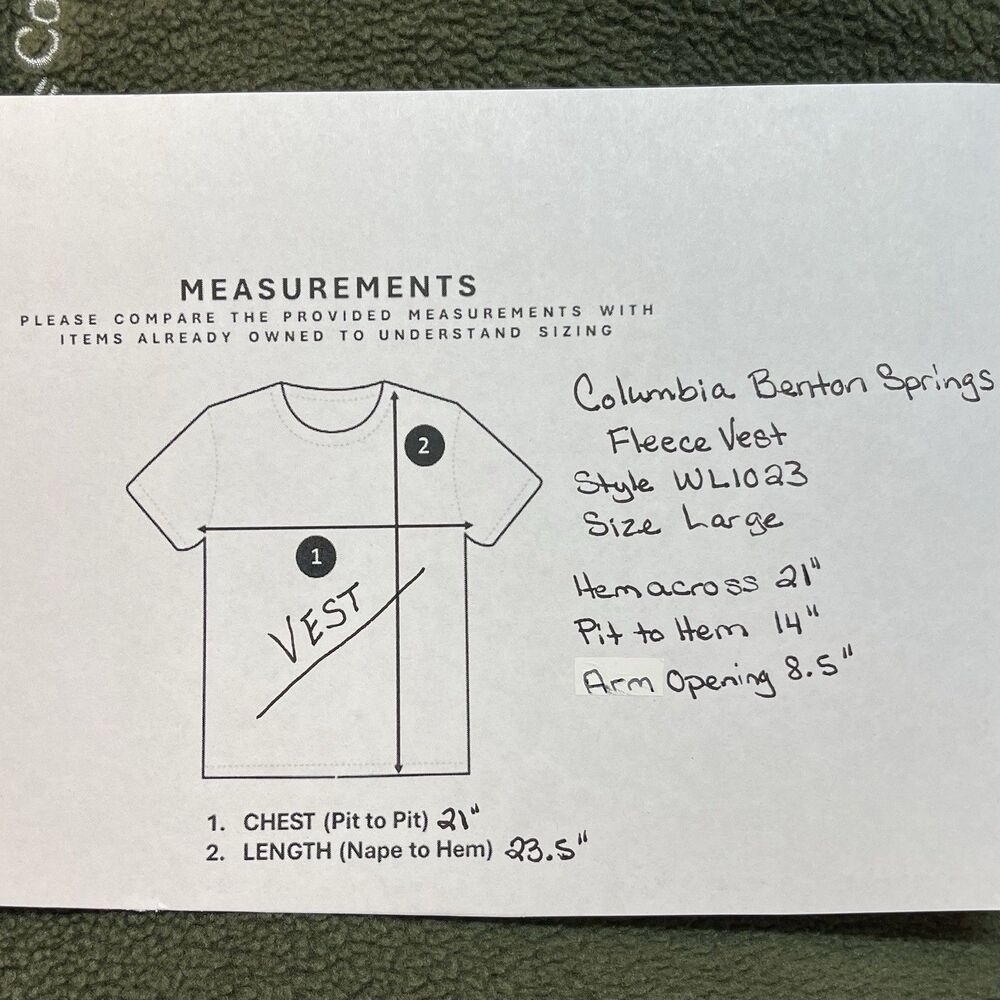 Co
MEASUREMENTS
PLEASE COMPARE THE PROVIDED MEASUREMENTS WITH
ITEMS ALREADY OWNED TO UNDERSTAND SIZING
Columbia Benton Springs
Fleece Vest
Style WL1023
Size Large
2
1
VEST
Hem across 21"
Pit to Hem 14"
Arm Opening 8.5"
1. CHEST (Pit to Pit) 21"
2. LENGTH (Nape to Hem) 23.5"